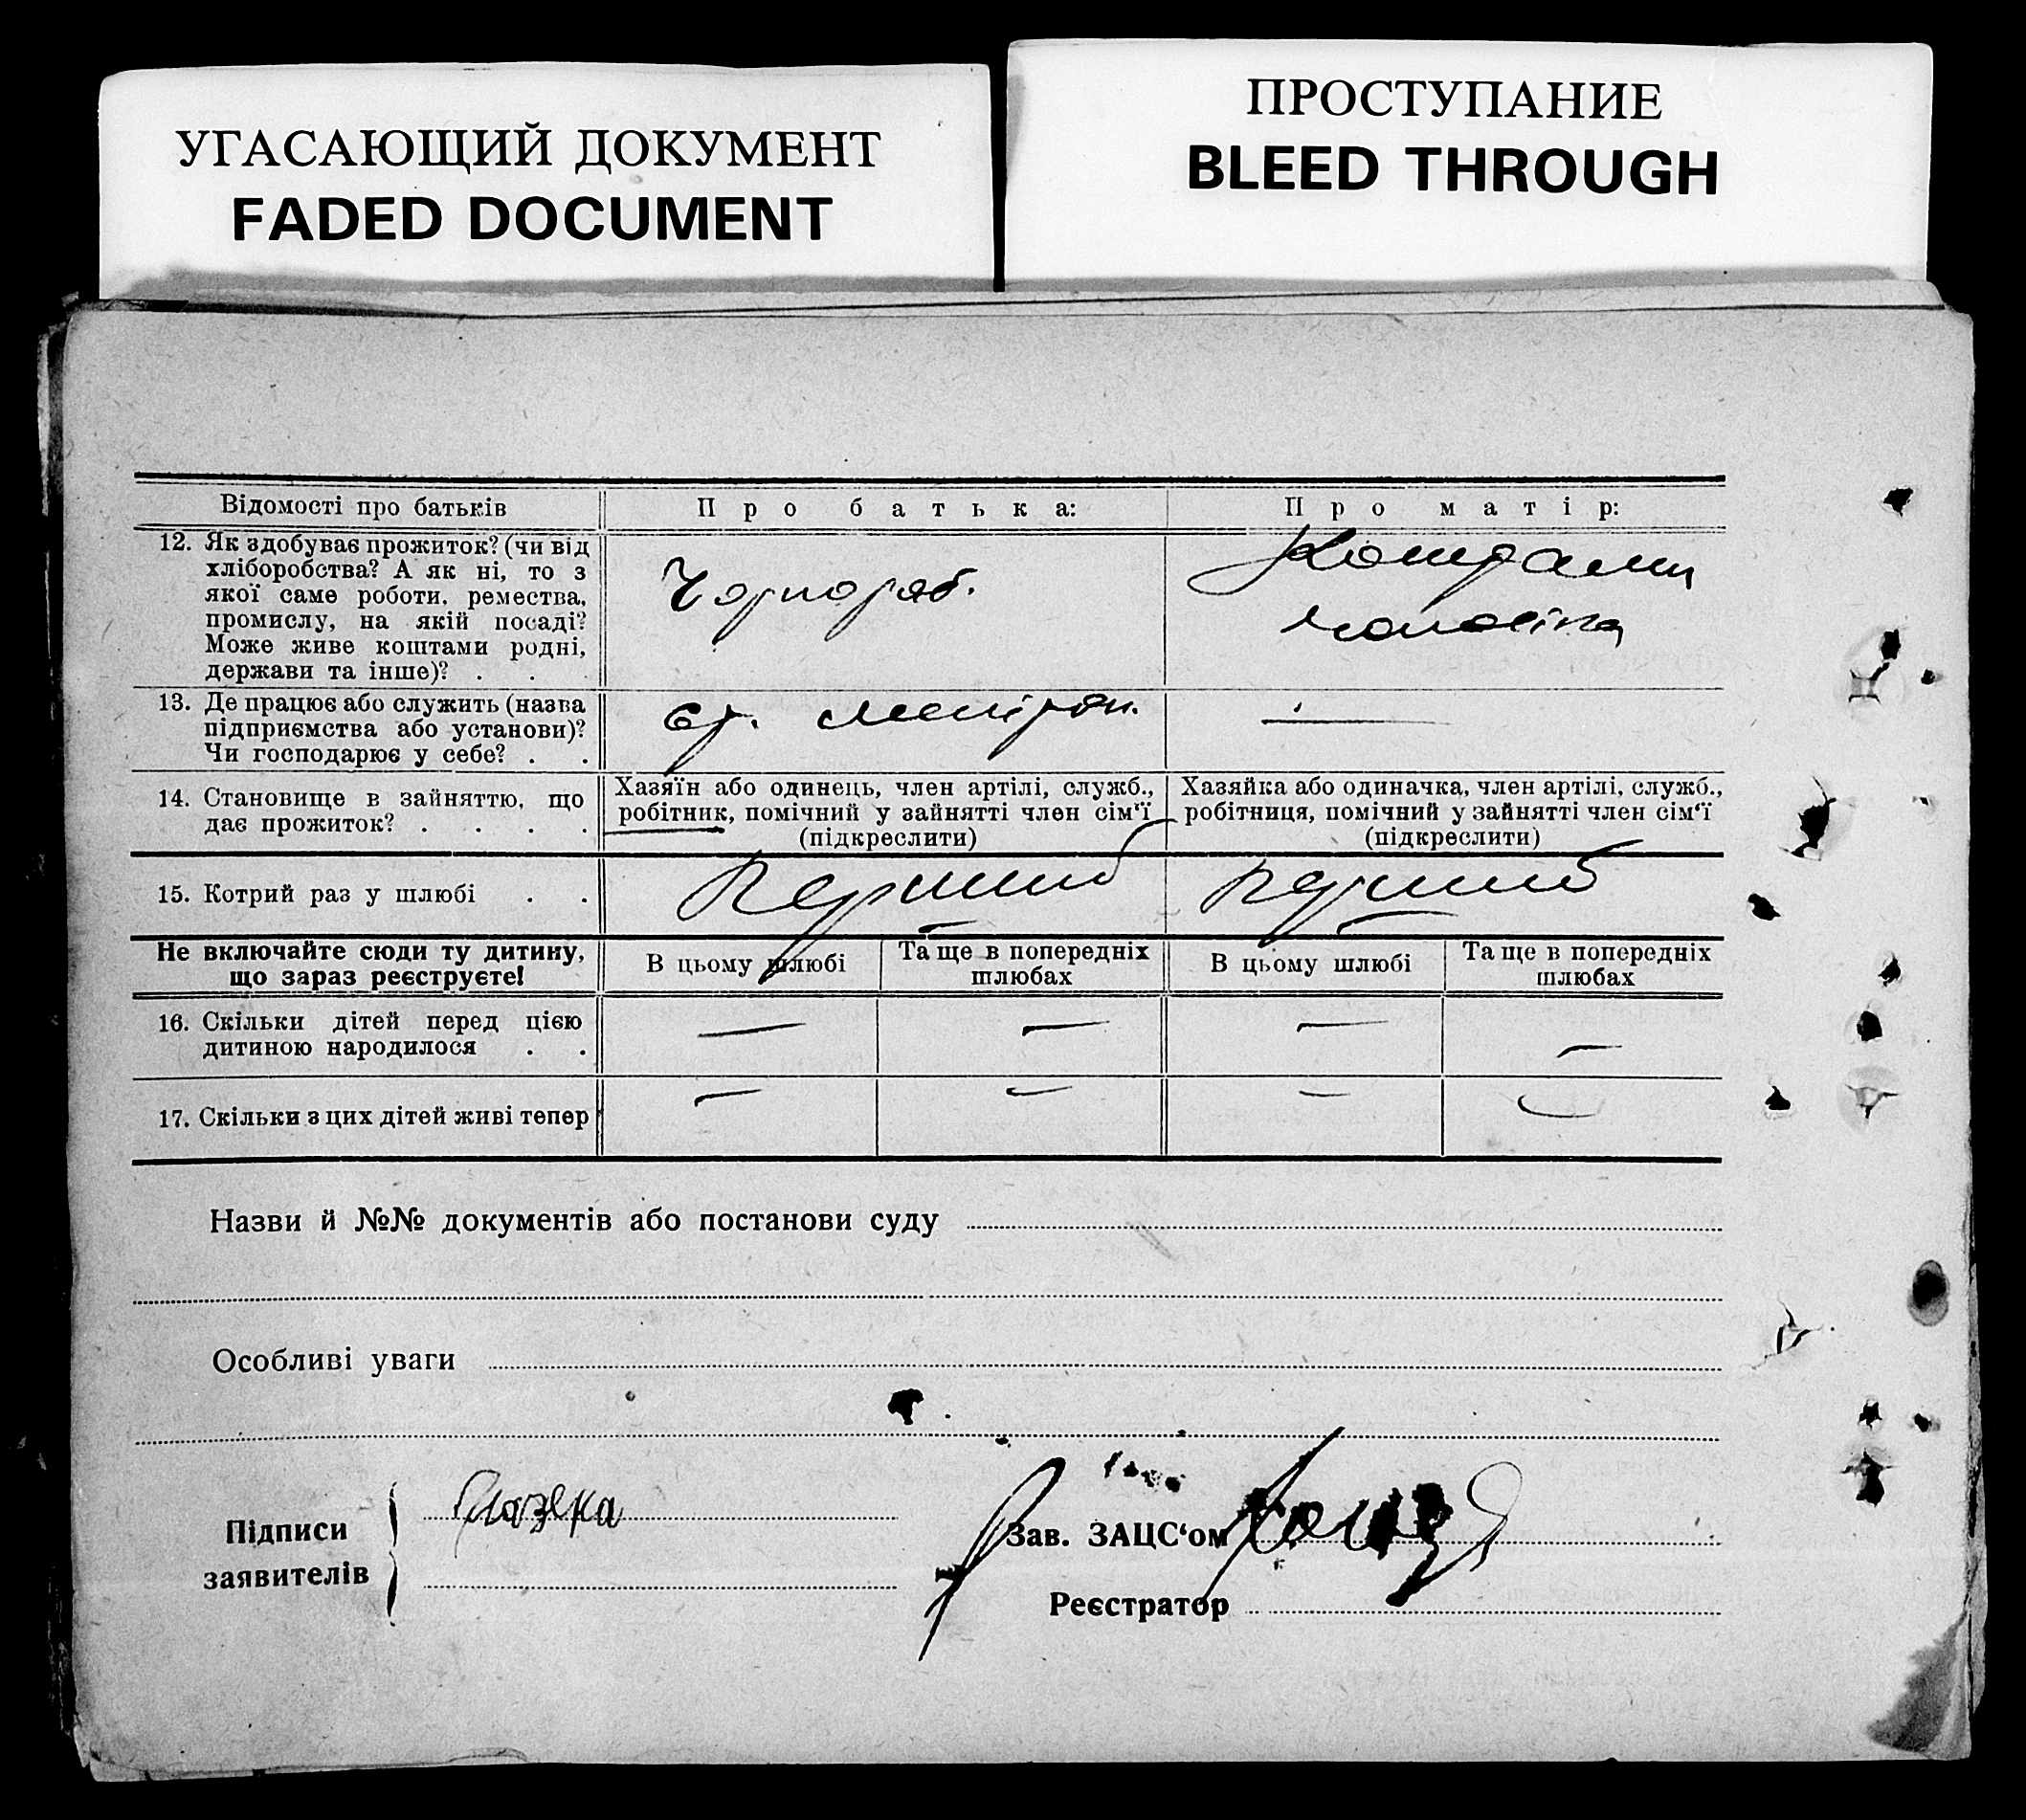 УГАСАЮЩИЙ ДОКУМЕНТ
FADED DOCUMENT
ПРОСТУПАНИЕ
BLEED THROUGH
Відомості про батьків
Про батька:
Про матір:
12. Як здобуває прожиток? (чи від
хліборобства? А як ні, то з
якої саме роботи, ремества,
промислу, на якій посаді?
Може живе коштами родні,
держави та інше)? . .
Чорнороб.
Коштами
чоловіка
13. Де працює або служить (назва
підприємства або установи)?
Чи господарює у себе? . .
—
14. Становище в зайняттю, що
дає прожиток? . . . .
Хазяїн або одинець, член артілі, служб.,
робітник, помічний у зайнятті член сім‘ї
(підкреслити)
Хазяйка або одиначка, член артілі, служб.,
робітниця, помічний у зайнятті член сім‘ї
(підкреслити)
15. Котрий раз у шлюбі . .
Перший
Перший
Не включайте сюди ту дитину,
що зараз реєструєте!
В цьому шлюбі
Та ще в попередніх
шлюбах
В цьому шлюбі
Та ще в попередніх
шлюбах
16. Скільки дітей перед цією
дитиною народилося . .
— — — —
17. Скільки з цих дітей живі тепер
— — — —
Назви й №№ документів або постанови суду
Особливі уваги
Підписи
заявителів
Зав. ЗАЦС‘ом
Реєстратор